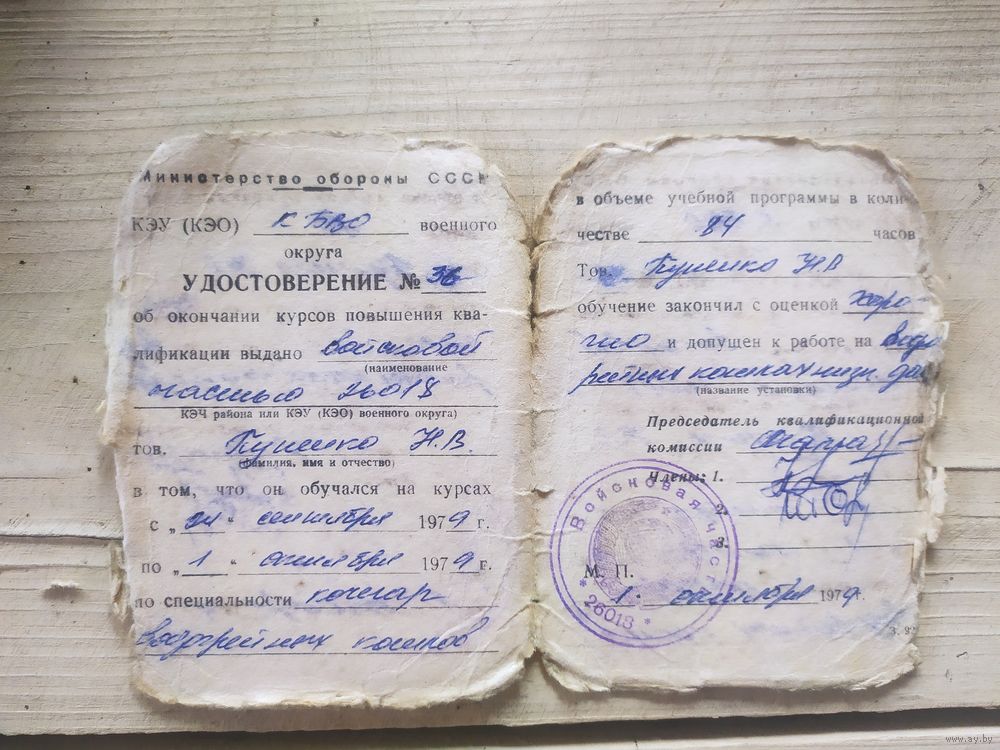 Министерство обороны СССР
КЭУ (КЭО) КБВО военного
округа
УДОСТОВЕРЕНИЕ № 36
об окончании курсов повышения ква-
лификации выдано войсковой
(наименование
частью 26018
КЭЧ района или КЭУ (КЭО) военного округа)
тов. Н.В.
(фамилия, имя и отчество)
в том, что он обучался на курсах
с „ “ сентября 1979 г.
по „1“ октября 1979 г.
по специальности кочегар
водогрейных котлов
в объеме учебной программы в коли-
честве 84 часов
Тов. Н.В
обучение закончил с оценкой хоро-
шо и допущен к работе на водо
грейных котлах низк. дав
(название установки)
Председатель квалификационной
комиссии
Члены: 1.
2.
3.
М. П.
1 октября 1979г.
Войсковая часть
* 26018 *
www.ay.by